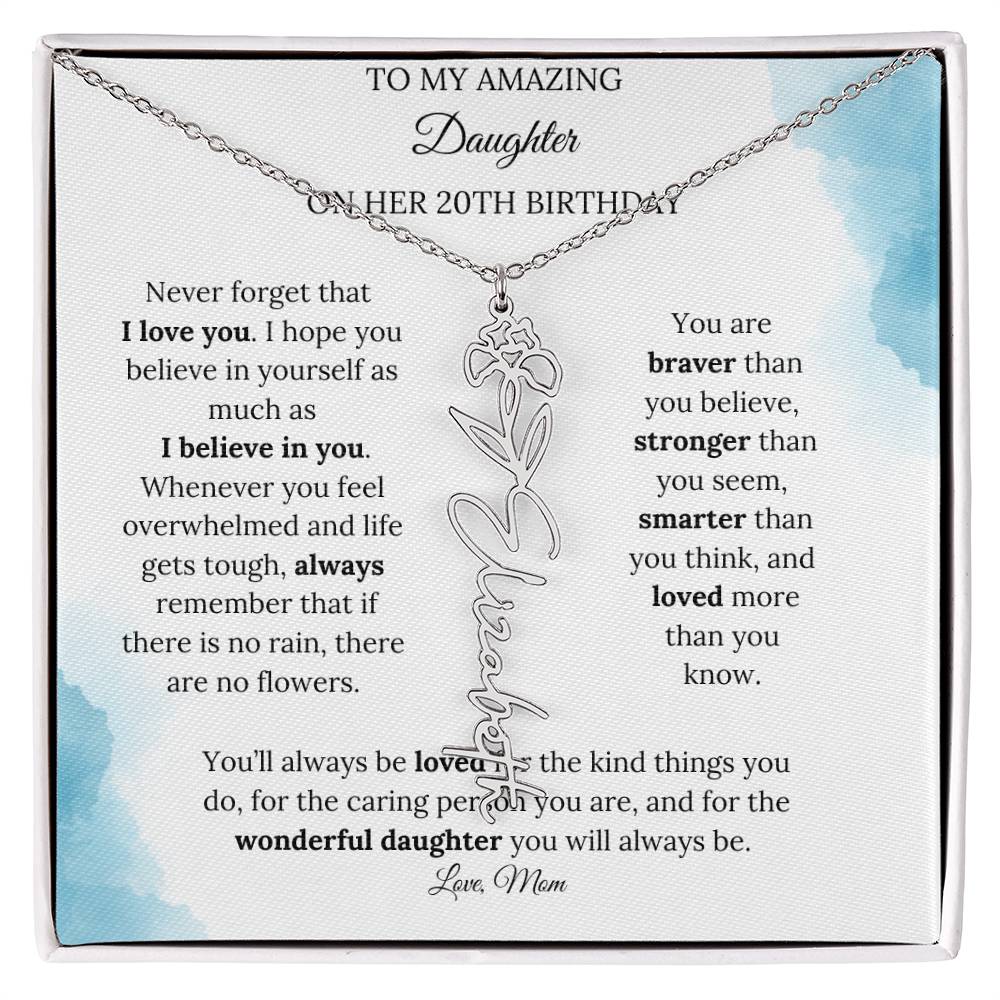 TO MY AMAZING
Daughter
ON HER 20TH BIRTHDAY
Never forget that
I love you. I hope you
believe in yourself as
much as
I believe in you.
Whenever you feel
overwhelmed and life
gets tough, always
remember that if
there is no rain, there
are no flowers.
You are
braver than
you believe,
stronger than
you seem,
smarter than
you think, and
loved more
than you
know.
Elizabeth
You'll always be loved for the kind things you
do, for the caring person you are, and for the
wonderful daughter you will always be.
Love, Mom